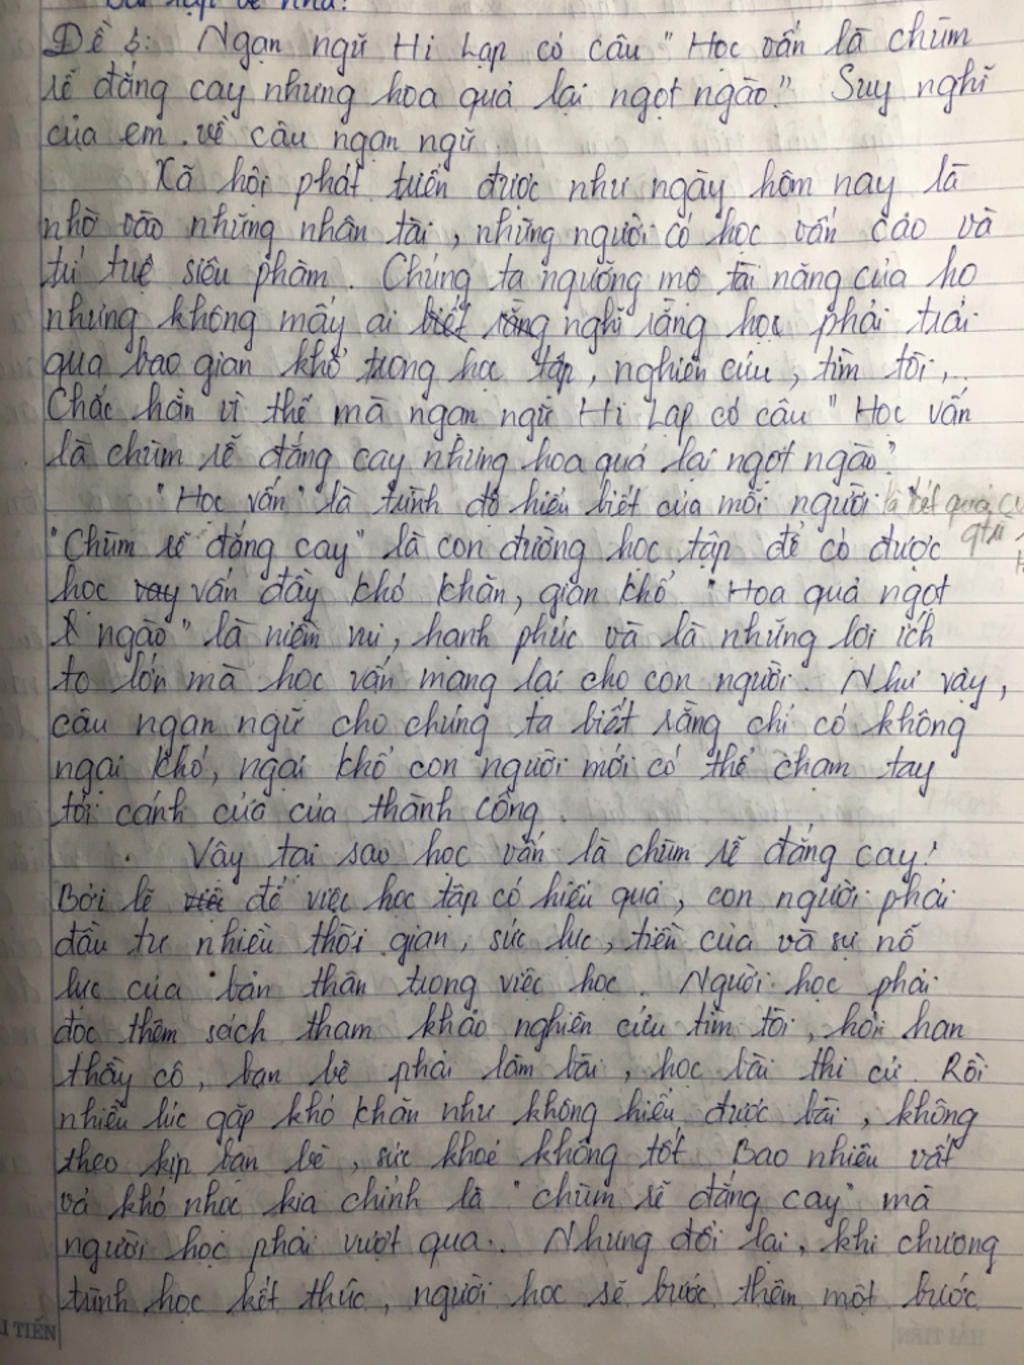 Đề 3: Ngạn ngữ Hi Lạp có câu "Học vấn là chùm
rễ đắng cay nhưng hoa quả lại ngọt ngào." Suy nghĩ
của em về câu ngạn ngữ.
Xã hội phát triển được như ngày hôm nay là
nhờ vào những nhân tài, những người có học vấn cao và
trí tuệ siêu phàm. Chúng ta ngưỡng mộ tài năng của họ
nhưng không mấy ai biết rằng nghĩ rằng học phải trải
qua bao gian khổ trong học tập, nghiên cứu, tìm tòi,..
Chắc hẳn vì thế mà ngạn ngữ Hi Lạp có câu "Học vấn
là chùm rễ đắng cay nhưng hoa quả lại ngọt ngào."
"Học vấn" là trình độ hiểu biết của mỗi người là kết quả
"Chùm rễ đắng cay" là con đường học tập để có được
học vấn đầy khó khăn, gian khổ. "Hoa quả ngọt
ngào" là niềm vui, hạnh phúc và là những lợi ích
to lớn mà học vấn mang lại cho con người. Như vậy,
câu ngạn ngữ cho chúng ta biết rằng chỉ có không
ngại khó, ngại khổ con người mới có thể chạm tay
tới cánh cửa của thành công.
Vậy tại sao học vấn là chùm rễ đắng cay?
Bởi lẽ để việc học tập có hiệu quả, con người phải
đầu tư nhiều thời gian, sức lực, tiền của và sự nỗ
lực của bản thân trong việc học. Người học phải
đọc thêm sách tham khảo nghiên cứu tìm tòi, hỏi han
thầy cô, bạn bè phải làm bài, học bài thi cử. Rồi
nhiều lúc gặp khó khăn như không hiểu được bài, không
theo kịp bạn bè, sức khoẻ không tốt. Bao nhiêu vất
vả khó nhọc kia chính là "chùm rễ đắng cay" mà
người học phải vượt qua. Nhưng đổi lại, khi chương
trình học kết thúc, người học sẽ bước thêm một bước